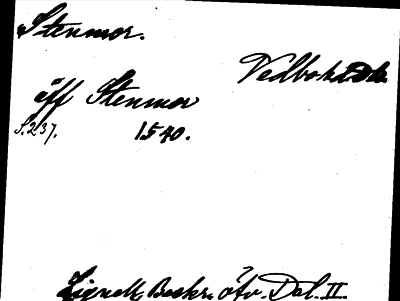 Stenmor.
Vedbo hd Ds.
öff Stenmor
S. 237. 1540.
Lignell, Beskr. öfv. Dal. II.